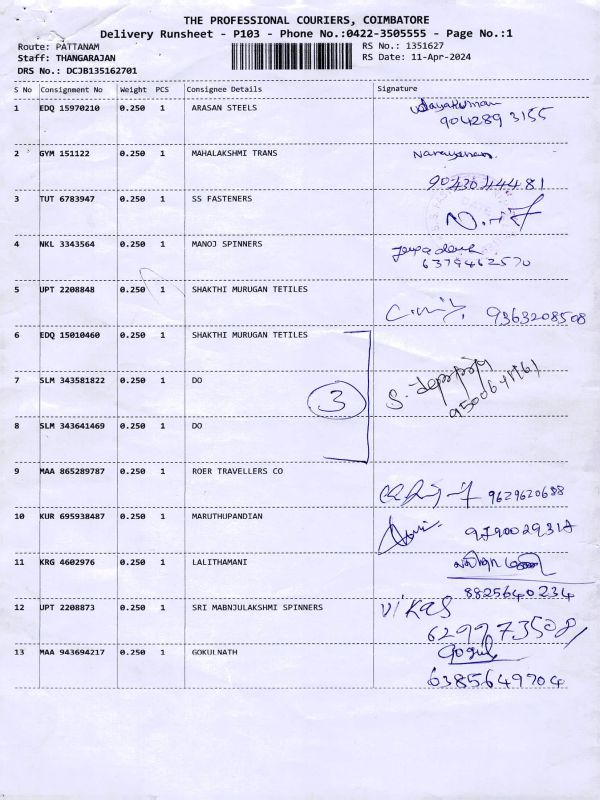 THE PROFESSIONAL COURIERS, COIMBATORE
Delivery Runsheet - P103 - Phone No.:0422-3505555 - Page No.:1
Route: PATTANAM RS No.: 1351627
Staff: THANGARAJAN RS Date: 11-Apr-2024
DRS No.: DCJB135162701
S No Consignment No Weight PCS Consignee Details Signature
1 EDQ 15970210 0.250 1 ARASAN STEELS Udayakumar
9042893155
2 GYM 151122 0.250 1 MAHALAKSHMI TRANS Narayanan
9043044481
3 TUT 6783947 0.250 1 SS FASTENERS
4 NKL 3343564 0.250 1 MANOJ SPINNERS
6379462570
5 UPT 2208848 0.250 1 SHAKTHI MURUGAN TETILES
9363208508
6 EDQ 15010460 0.250 1 SHAKTHI MURUGAN TETILES
7 SLM 343581822 0.250 1 DO
3
8 SLM 343641469 0.250 1 DO
9 MAA 865289787 0.250 1 ROER TRAVELLERS CO
9629620688
10 KUR 695938487 0.250 1 MARUTHUPANDIAN
11 KRG 4602976 0.250 1 LALITHAMANI
8825640234
12 UPT 2208873 0.250 1 SRI MABNJULAKSHMI SPINNERS Vikas
6299735081
13 MAA 943694217 0.250 1 GOKULNATH Gogul
6385649704